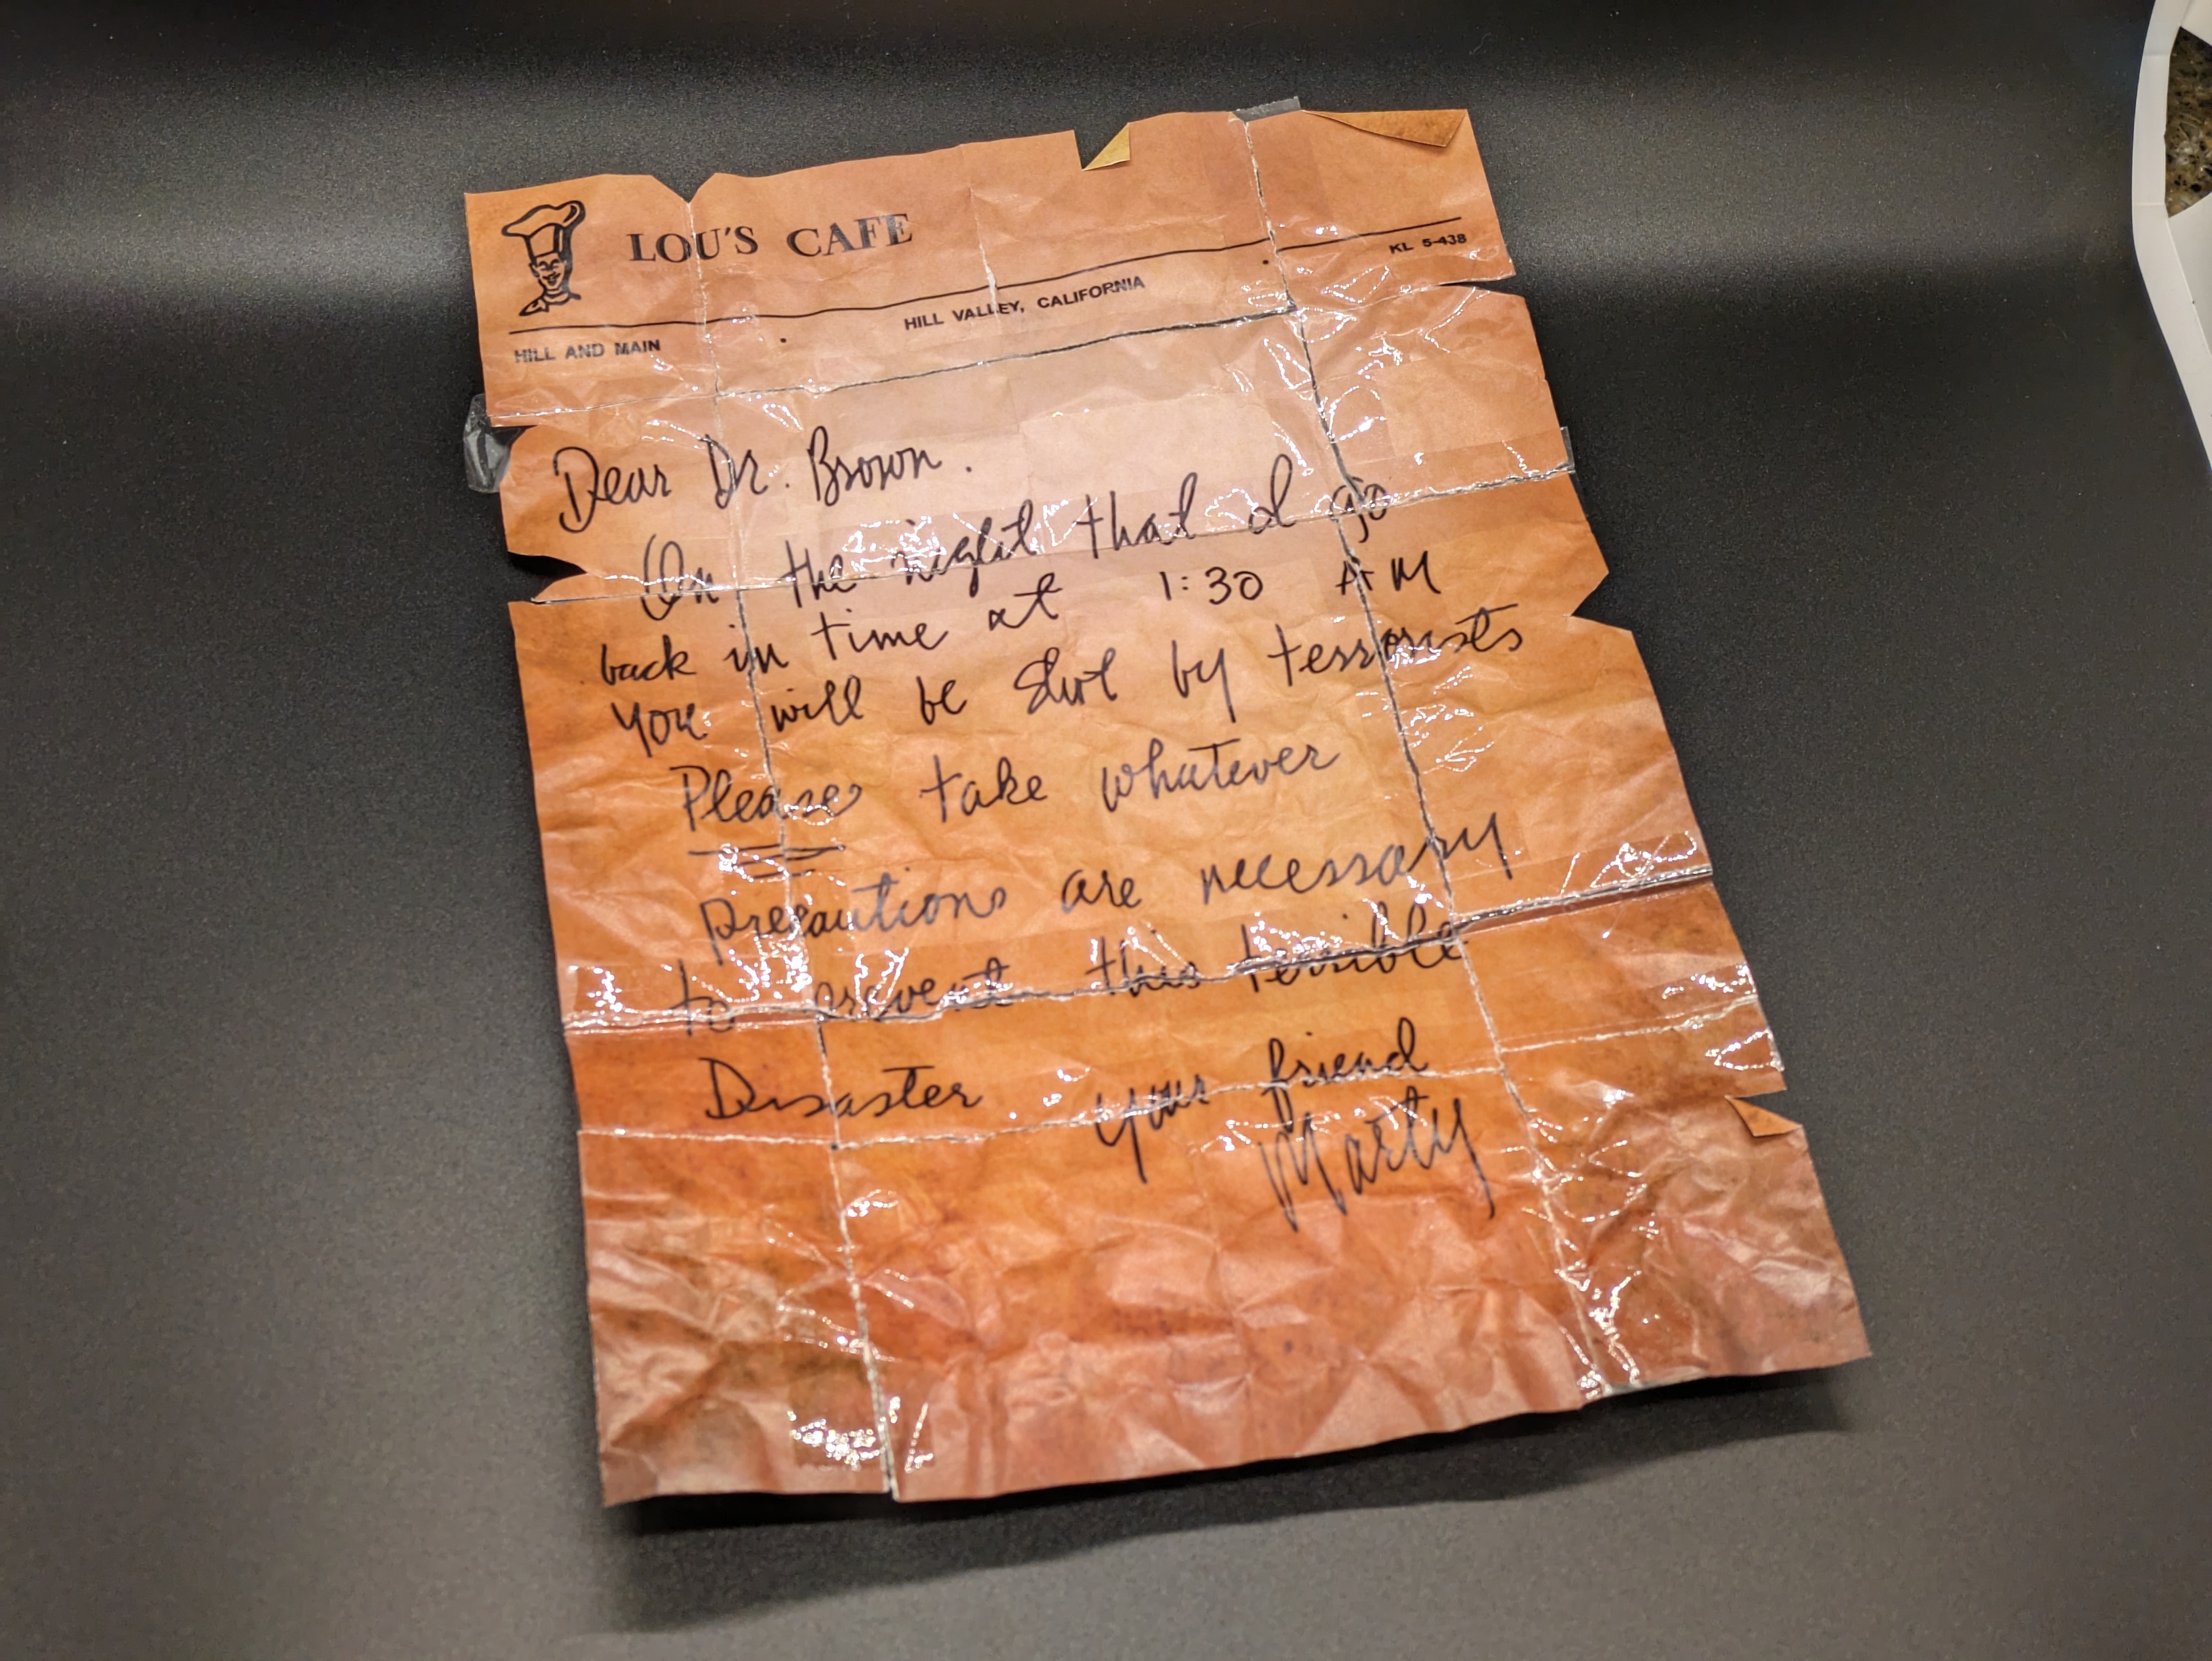 LOU'S CAFE
KL 5-438
HILL VALLEY, CALIFORNIA
HILL AND MAIN
Dear Dr. Brown.
On the night that I go
back in time at 1:30 AM
you will be shot by terrorists
Please take whatever
precautions are necessary
to prevent this terrible
Disaster
your friend
Marty